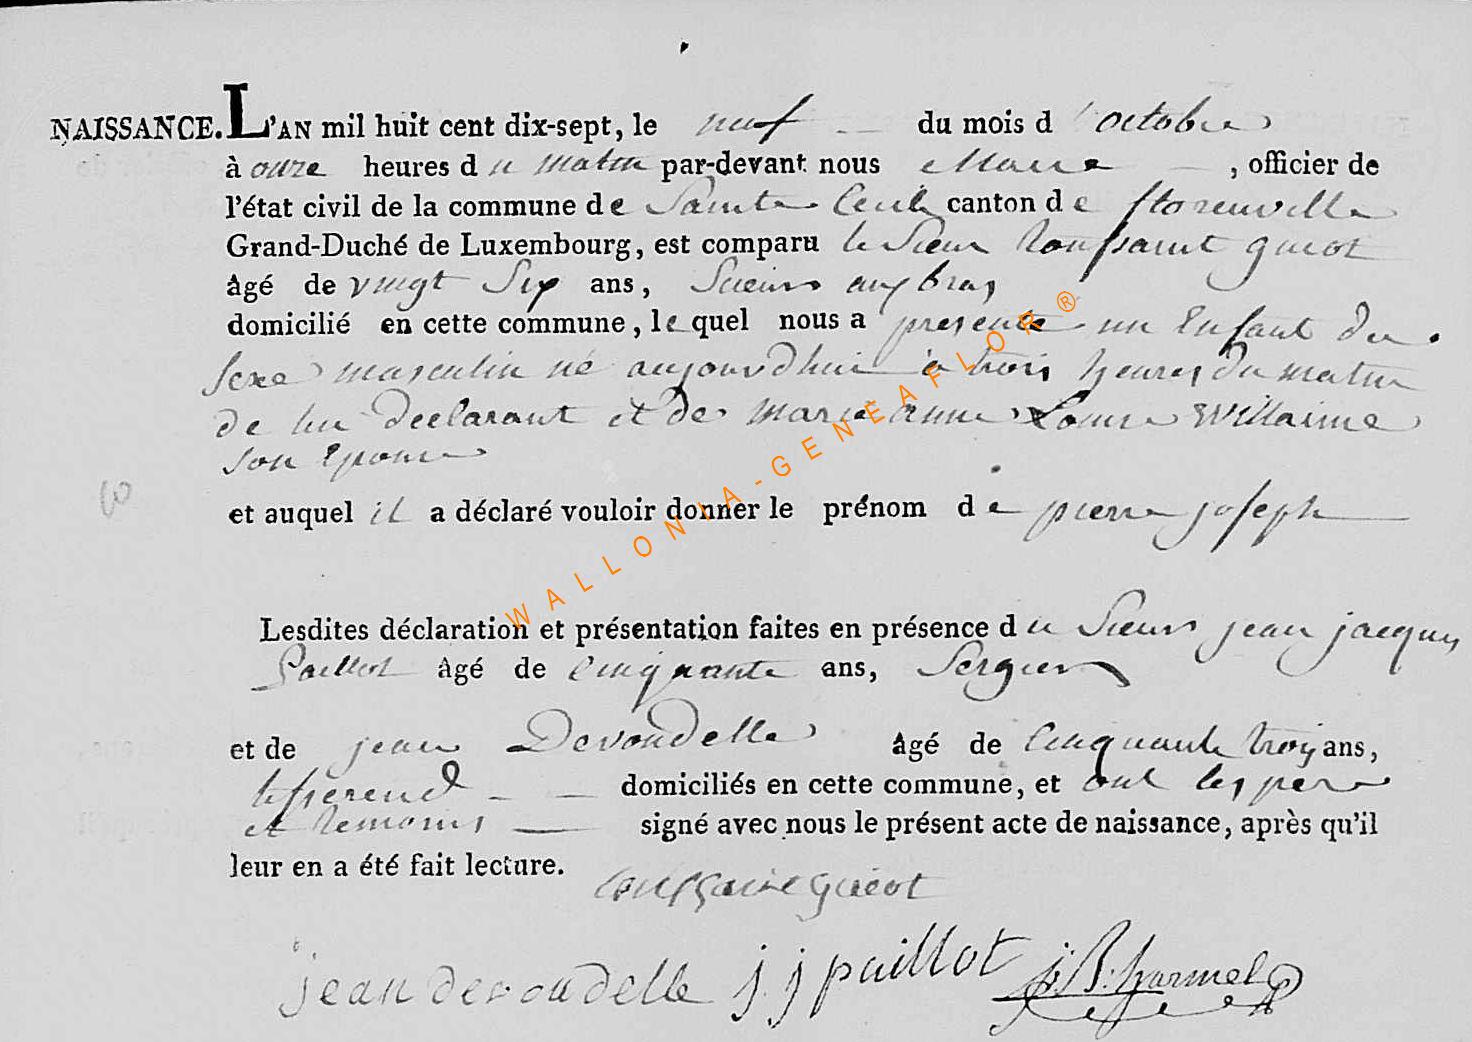 NAISSANCE. L'AN mil huit cent dix-sept, le neuf du mois d'octobre
à onze heures du matin par-devant nous Maire, officier de
l'état civil de la commune de Sainte Cecile canton de florenville
Grand-Duché de Luxembourg, est comparu le Sieur Toussaint guiot
âgé de vingt Six ans, Scieur
domicilié en cette commune, lequel nous a presenté un Enfant du
sexe masculin né aujourdhui à trois heures du matin
de lui declarant et de marie anne Louise Willaime
son Epouse
et auquel il a déclaré vouloir donner le prénom de pierre joseph
Lesdites déclaration et présentation faites en présence du Sieur jean jacques
Paillot âgé de cinquante ans, Sergier
et de jean Devoudelle âgé de cinquante trois ans,
tisserend domiciliés en cette commune, et ont les pere
et temoins signé avec nous le présent acte de naissance, après qu'il
leur en a été fait lecture.
toussaint guiot
jean devoudelle j j paillot j. B. harmel
WALLONIA-GENEAFLOR ®